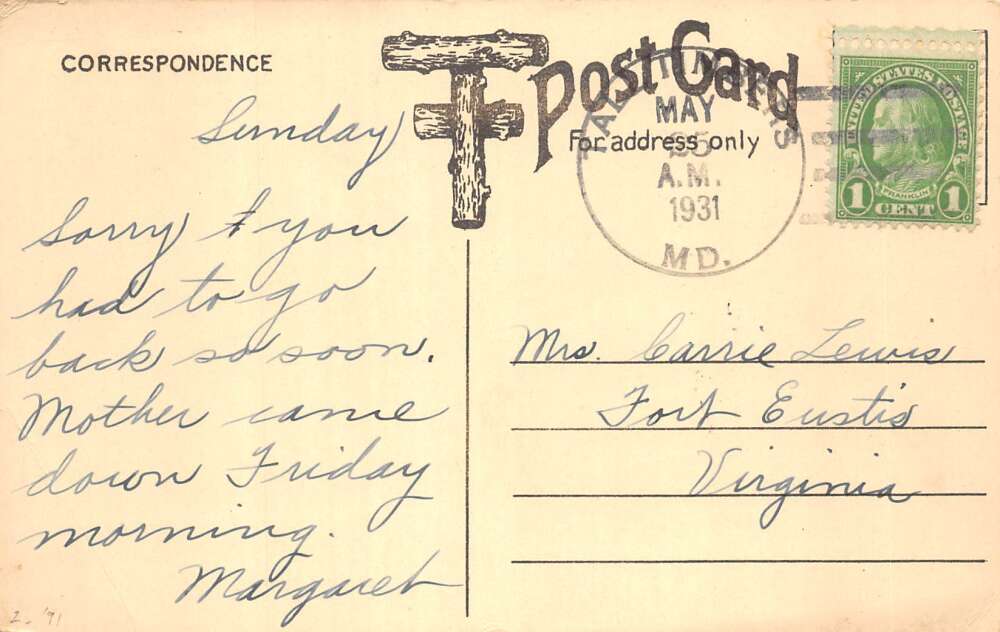 CORRESPONDENCE
Post Card
For address only
MAY
25
A.M.
1931
MD.
UNITED STATES POSTAGE
FRANKLIN
1 CENT 1
Sunday
Sorry t you
had to go
back so soon.
Mother came
down Friday
morning.
Margaret
Mrs. Carrie Lewis
Fort Eustis
Virginia
2-'91